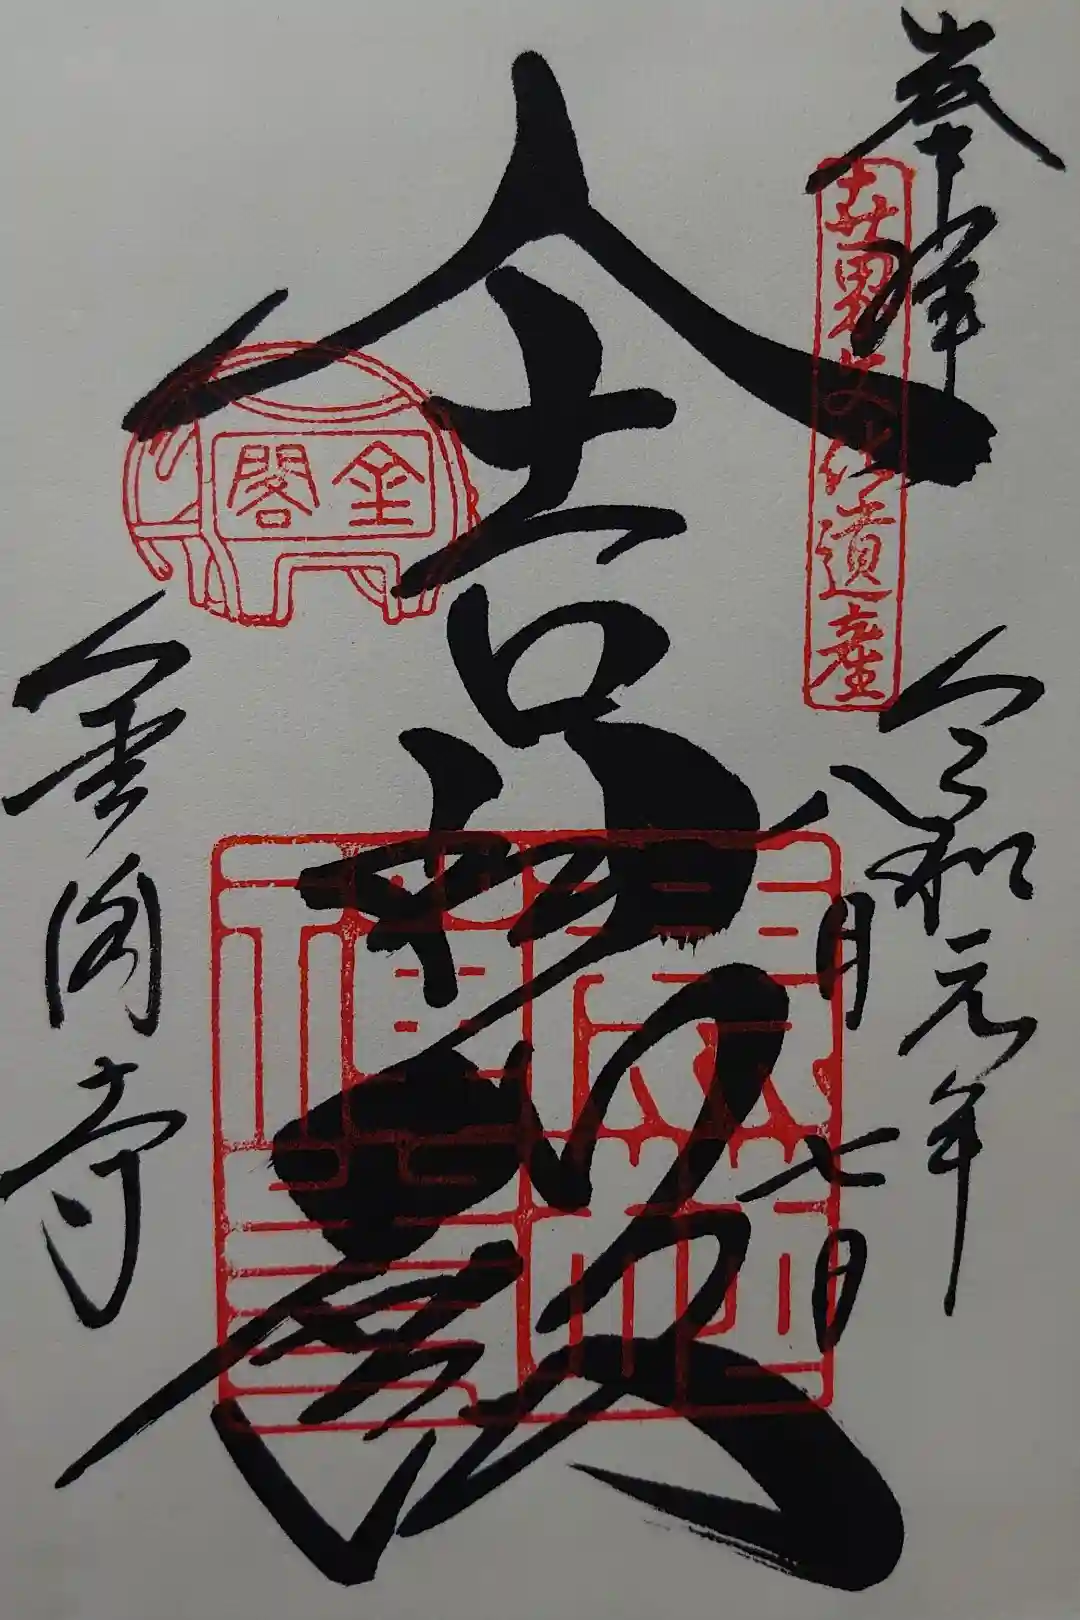 奉拝
世界文化遺産
令和元年
八月七日
舎利殿
金閣
金閣寺